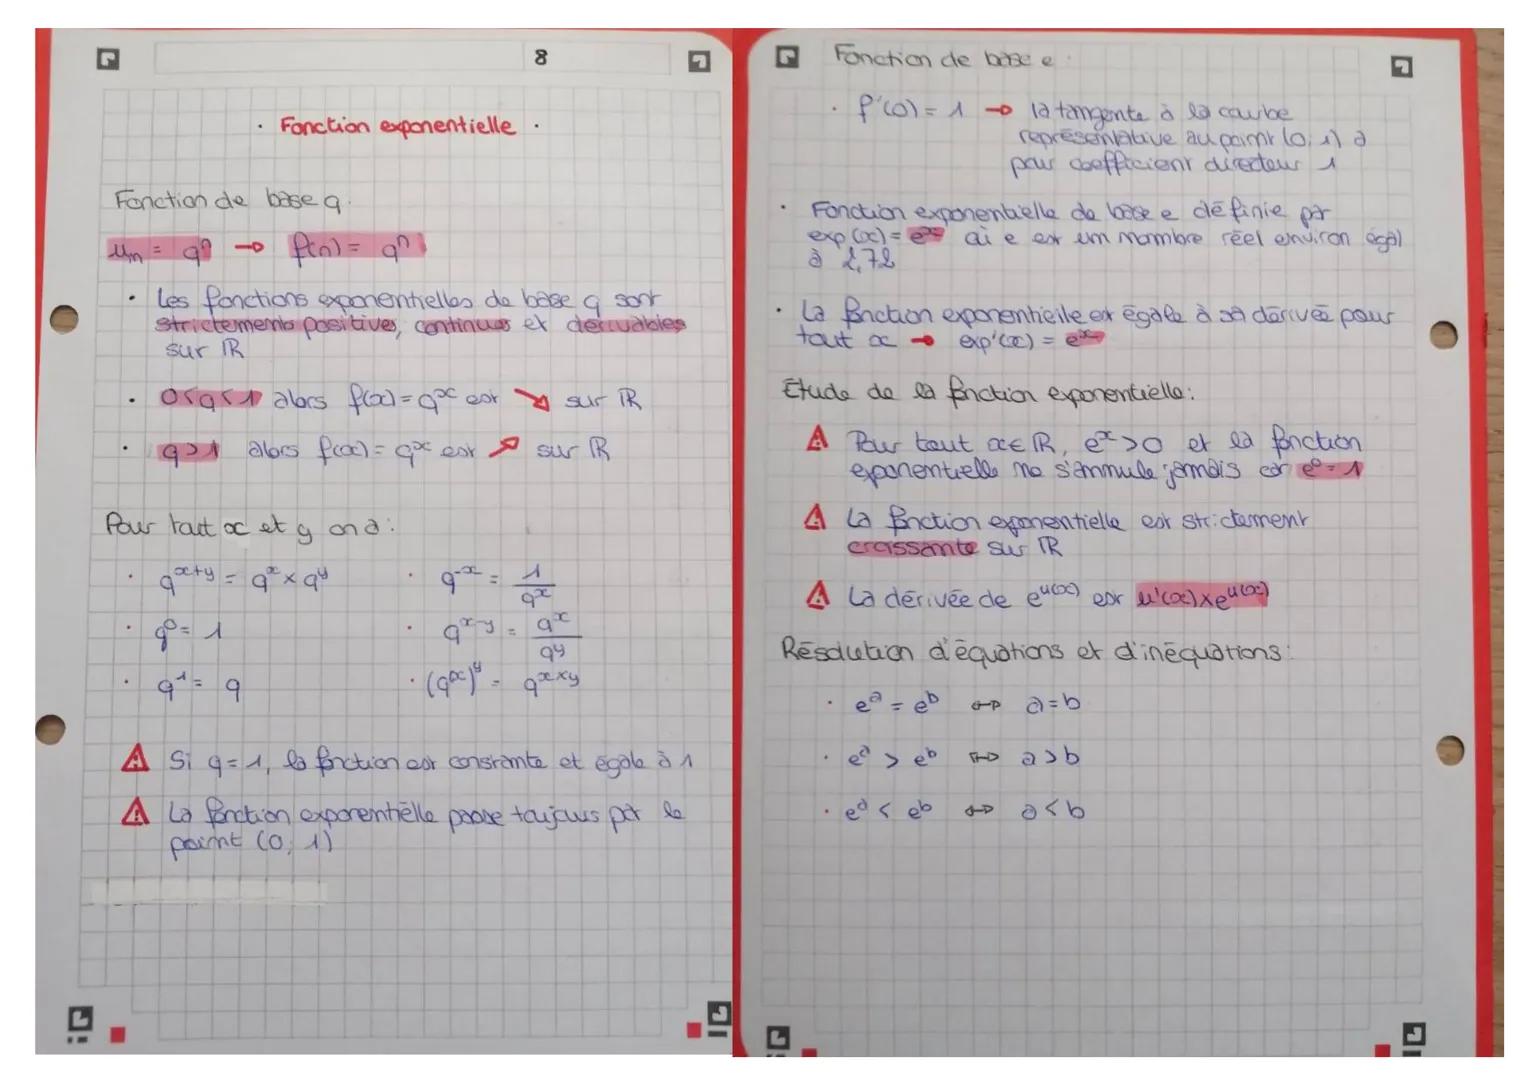 8
· Fonction exponentielle ·
Fonction de base q.
uₙ = qⁿ → f(n) = qⁿ
· Les fonctions exponentielles de base q sont
strictements positives, continues et dérivables
sur ℝ
· 0<q<1 alors f(x)=qˣ est ↘ sur ℝ
· q>1 alors f(x)= qˣ est ↗ sur ℝ
Pour tout x et y on a :
· q^{x+y} = q^x × q^y
· q⁰ = 1
· q¹ = q
· q^{-x} = 1/q^x
· q^{x-y} = q^x/q^y
· (q^x)^y = q^{x×y}
⚠ Si q=1, la fonction est constante et égale à 1
⚠ La fonction exponentielle passe toujours par le
point (0; 1)
Fonction de base e :
· f'(0) = 1 → la tangente à la courbe
représentative au point (0; 1) a
pour coefficient directeur 1
· Fonction exponentielle de base e définie par
exp(x) = e^x où e est un nombre réel environ égal
à 2,72
· La fonction exponentielle est égale à sa dérivée pour
tout x → exp'(x) = e^x
Etude de la fonction exponentielle :
⚠ Pour tout x∈ℝ, e^x>0 et la fonction
exponentielle ne s'annule jamais car e⁰ = 1
⚠ La fonction exponentielle est strictement
croissante sur ℝ
⚠ La dérivée de e^{u(x)} est u'(x)×e^{u(x)}
Résolution d'équations et d'inéquations :
· e^a = e^b ⇔ a=b
· e^a > e^b ⇔ a>b
· e^a < e^b ⇔ a<b